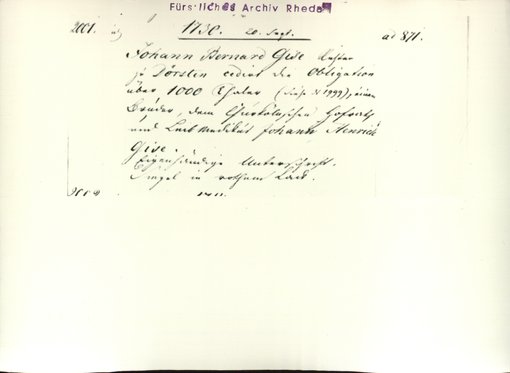 Fürstliches Archiv Rheda
2001. 1730. 20. Sept. ad 871.
Johann Bernard Gise
zu Dorsten cedirt die Obligation
über 1000 Thaler (dieß N 1999), seinem
Bruder, dem Churkölnischen Hofrath
und Leib Medikus Johann Henrich
Gise.
Eigenhändige Unterschrift.
Siegel in rothem Lack.